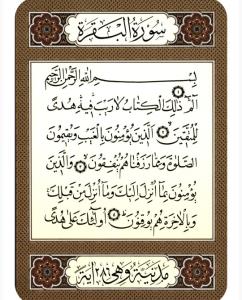 سورة البقرة
بسم الله الرحمن الرحيم
الم ۝ ذلك الكتاب لا ريب فيه هدى
للمتقين ۝ الذين يؤمنون بالغيب ويقيمون
الصلوة ومما رزقناهم ينفقون ۝ والذين
يؤمنون بما أنزل إليك وما أنزل من قبلك
وبالآخرة هم يوقنون ۝ أولئك على هدى
مدنية وهي ٢٨٦ آية